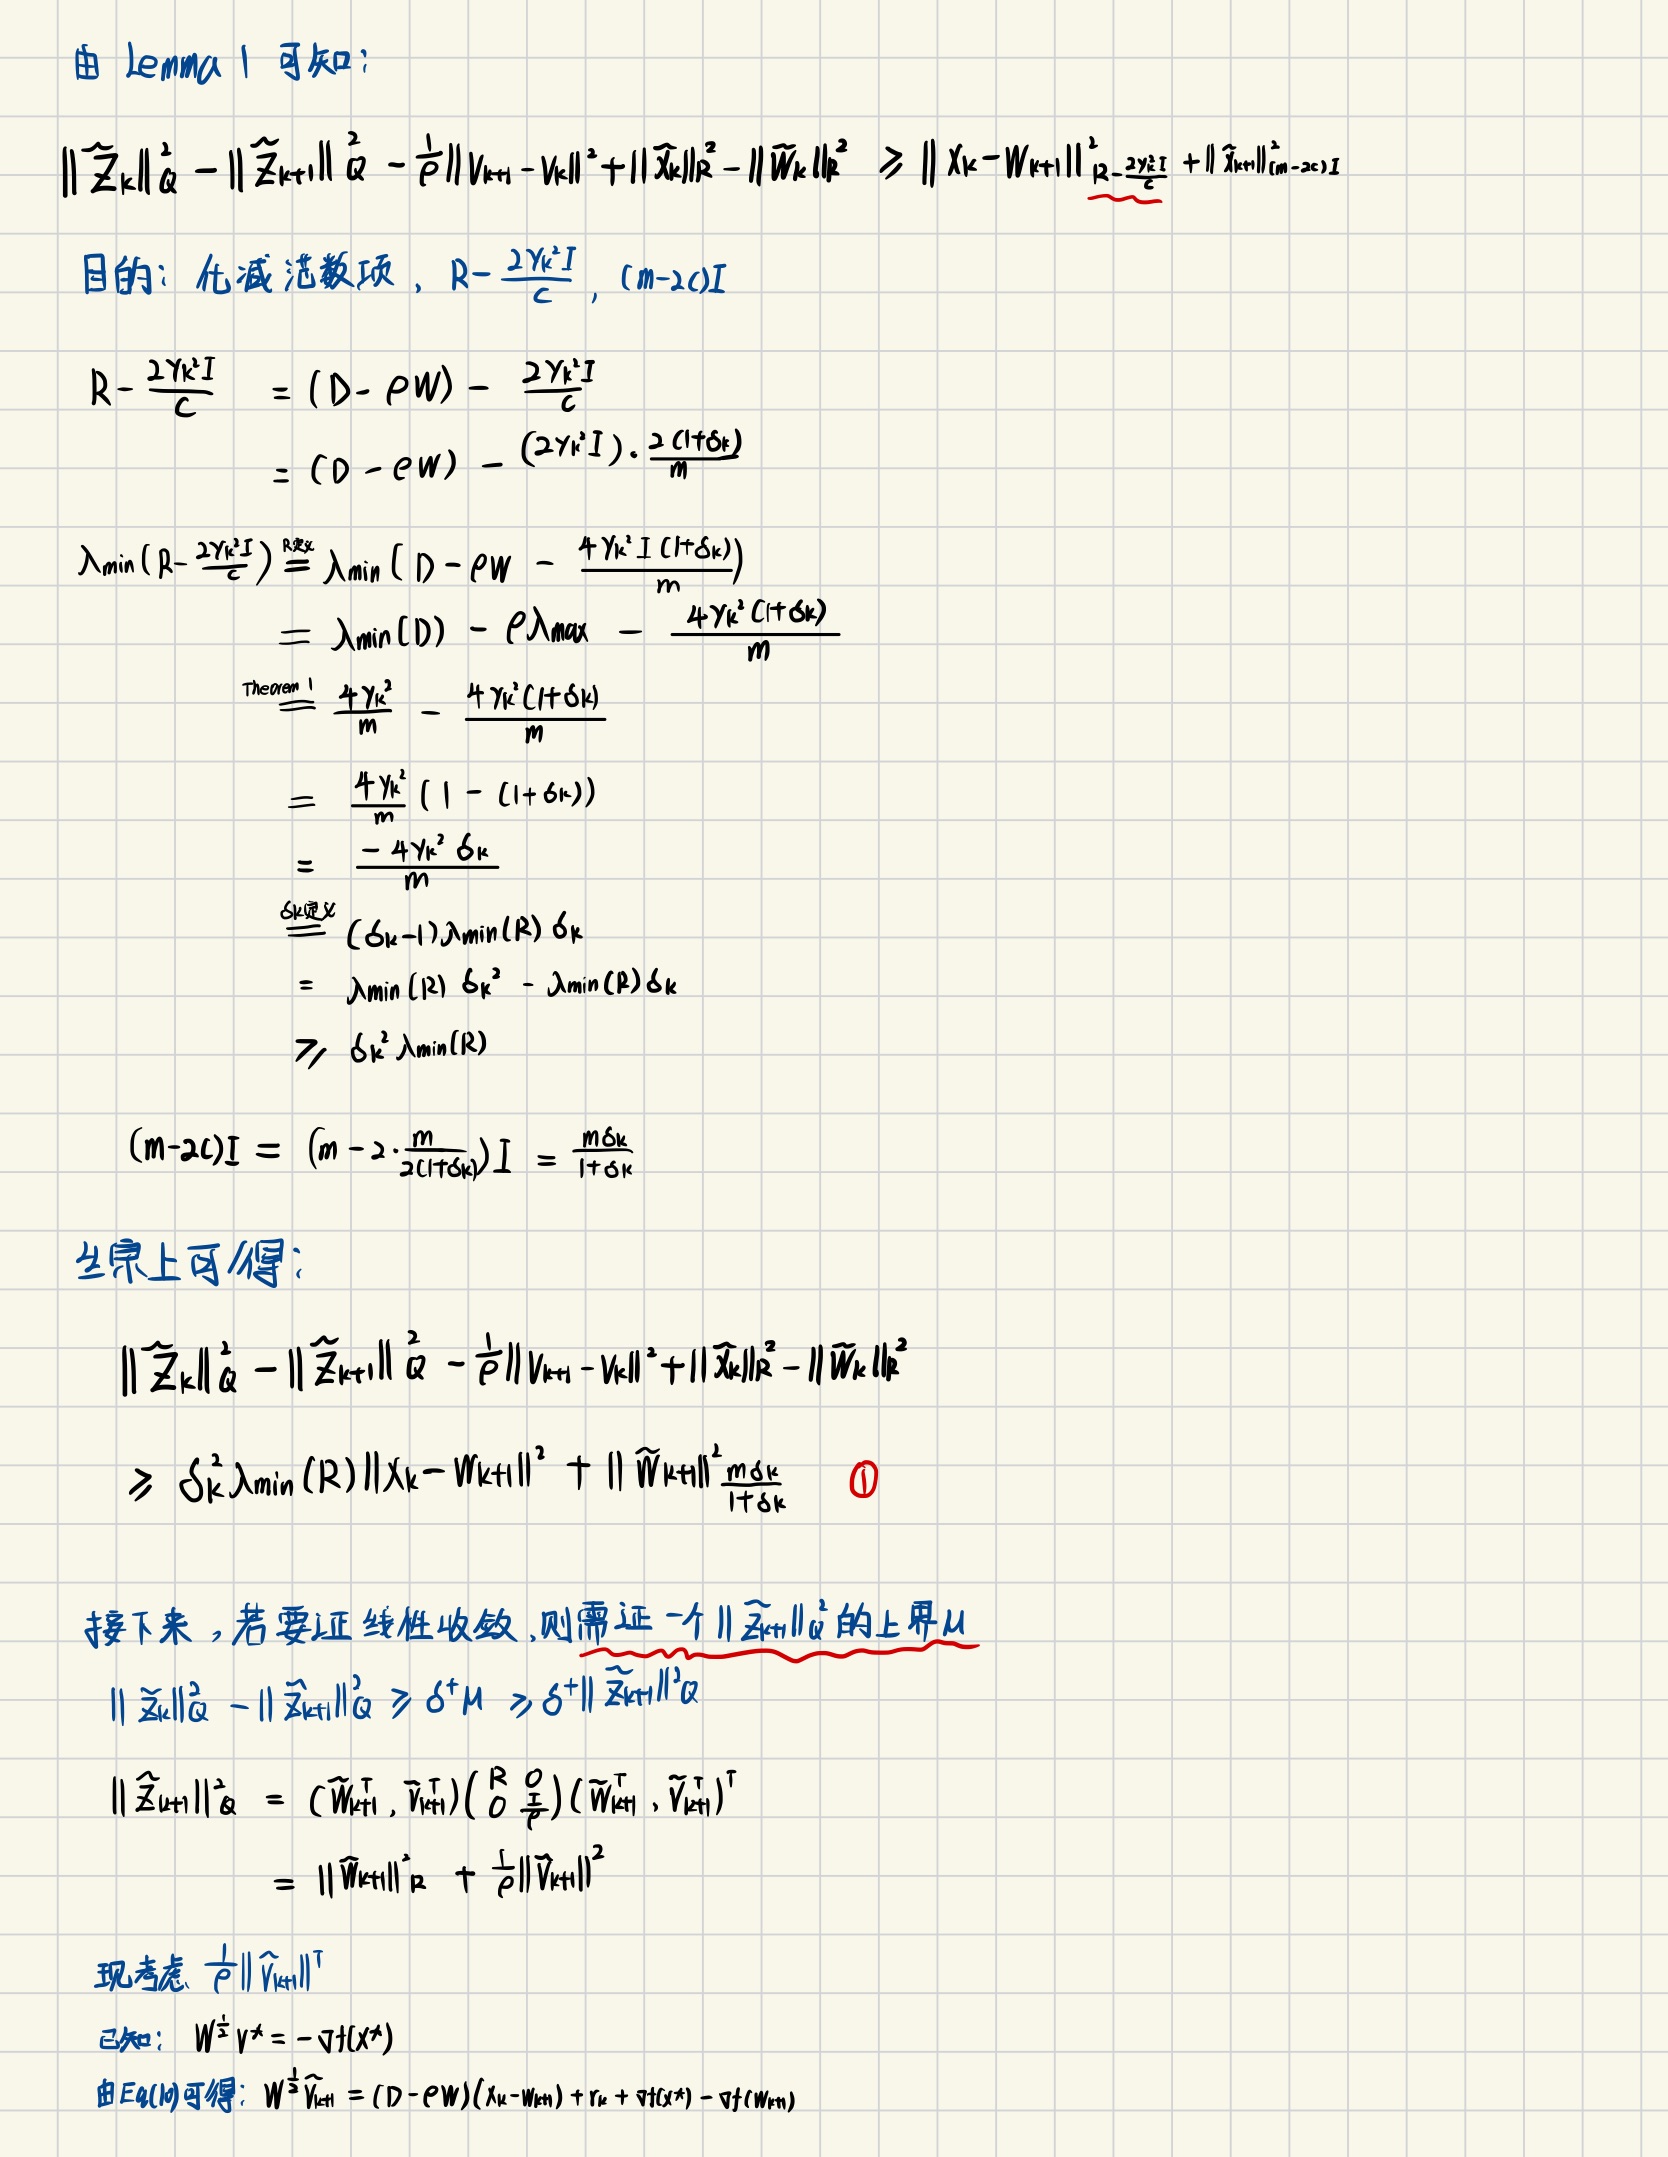 由 Lemma 1 可知:
||Z̃k||²Q - ||Z̃k+1||²Q - 1/ρ ||Vk+1 - Vk||² + ||X̃k||R² - ||W̃k||R² ≥ ||Xk - Wk+1||²R-2γk²I/c + ||X̃k+1||²(m-2c)I
目的: 化减范数项, R - 2γk²I/c, (m-2c)I
R - 2γk²I/c = (D - ρW) - 2γk²I/c
= (D - ρW) - (2γk²I)·2(1+δk)/m
λmin(R - 2γk²I/c) =(R定义) λmin(D - ρW - 4γk²I(1+δk)/m)
= λmin(D) - ρλmax - 4γk²(1+δk)/m
=(Theorem 1) 4γk²/m - 4γk²(1+δk)/m
= 4γk²/m (1 - (1+δk))
= -4γk²δk/m
=(δk定义) (δk-1)λmin(R)δk
= λmin(R)δk² - λmin(R)δk
≥ δk²λmin(R)
(m-2c)I = (m - 2·m/2(1+δk))I = mδk/1+δk
上可得:
||Z̃k||²Q - ||Z̃k+1||²Q - 1/ρ ||Vk+1 - Vk||² + ||X̃k||R² - ||W̃k||R²
≥ δk²λmin(R)||Xk - Wk+1||² + ||W̃k+1||² mδk/1+δk ①
接下来,若要证线性收敛,则需证一个||Z̃k+1||Q²的上界μ
||Z̃k||²Q - ||Z̃k+1||²Q ≥ δ⁺μ ≥ δ⁺||Z̃k+1||²Q
||Z̃k+1||²Q = (W̃ᵀk+1, Ṽᵀk+1)(R 0 0 I/ρ)(W̃ᵀk+1, Ṽᵀk+1)ᵀ
= ||W̃k+1||²R + 1/ρ||Ṽk+1||²
现考虑 1/ρ||Ṽk+1||ᵀ
已知: W^½ V* = -∇f(X*)
由Eq(10)可得: W^½ Ṽk+1 = (D - ρW)(Xk - Wk+1) + rk + ∇f(X*) - ∇f(Wk+1)